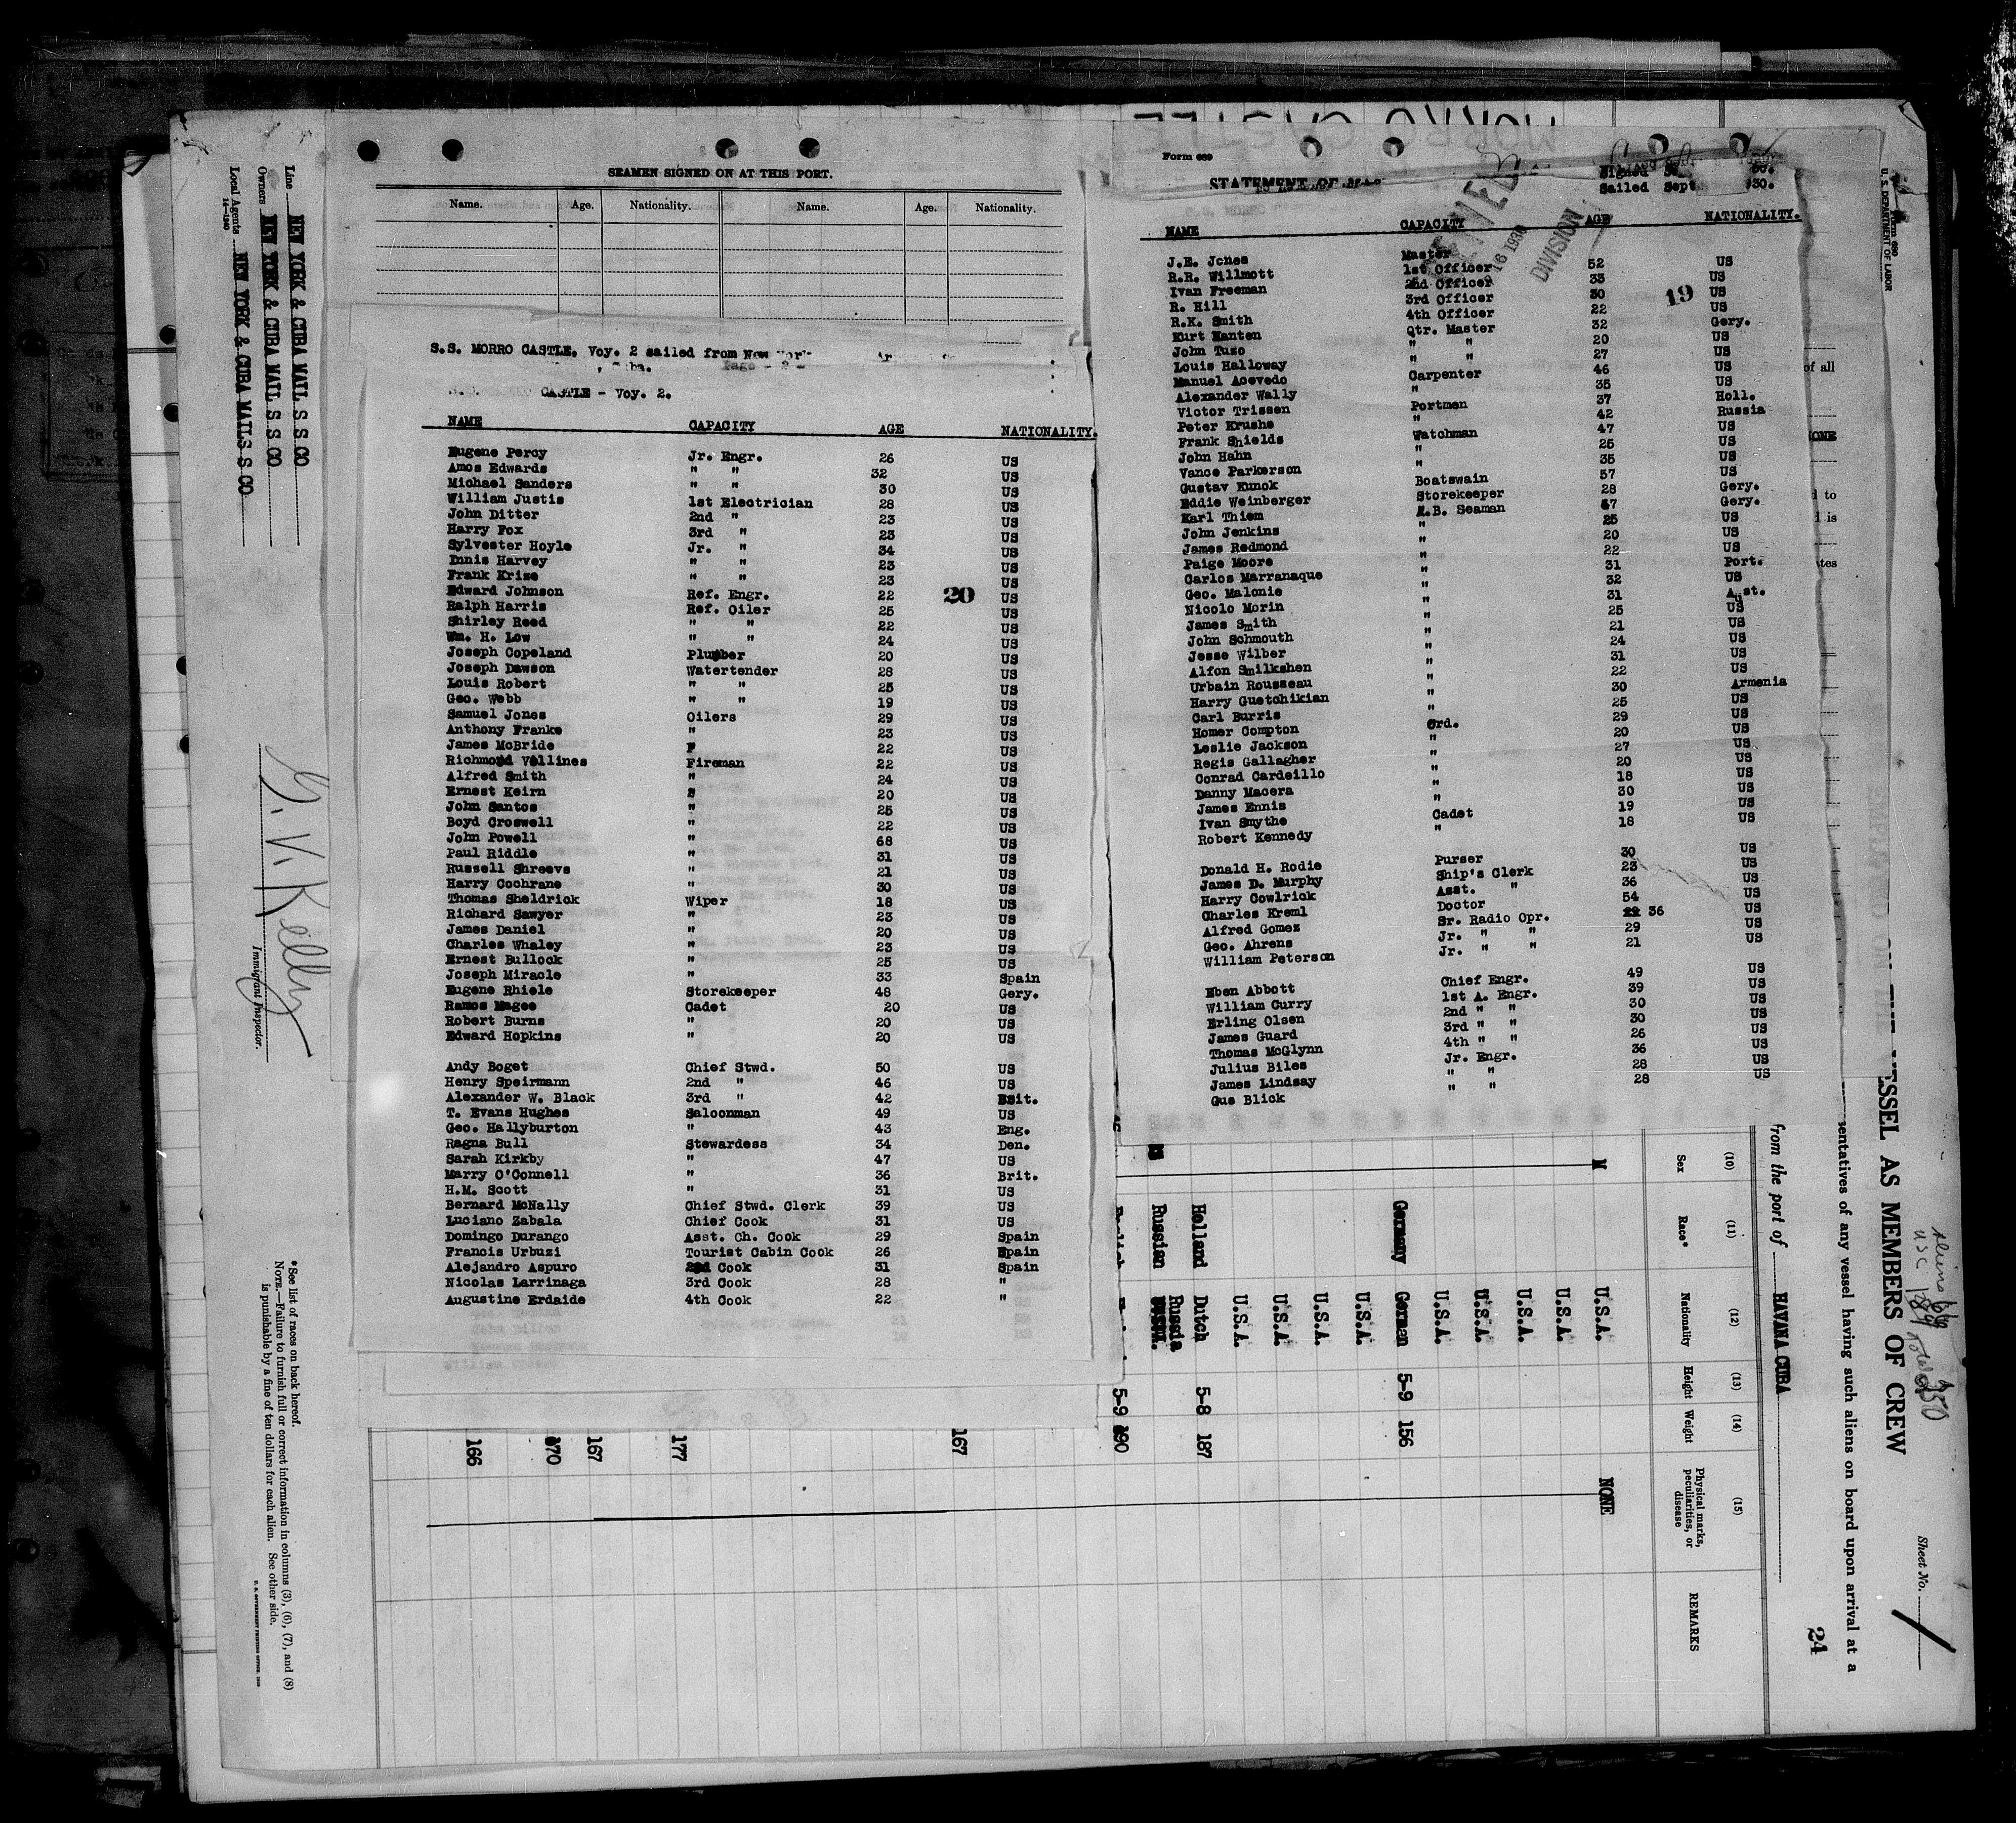 SEAMEN SIGNED ON AT THIS PORT.
Name. Age. Nationality. Name. Age. Nationality.
S.S. MORRO CASTLE, Voy. 2 sailed from New York
CASTLE - Voy. 2.
NAME CAPACITY AGE NATIONALITY.
Eugene Percy Jr. Engr. 26 US
Amos Edwards " " 32 US
Michael Sanders " " 30 US
William Justis 1st Electrician 28 US
John Ditter 2nd " 23 US
Harry Fox 3rd " 23 US
Sylvester Hoyle Jr. " 34 US
Innis Harvey " " 23 US
Frank Krize " " 23 US
Edward Johnson Ref. Engr. 22 US
20
Ralph Harris Ref. Oiler 25 US
Shirley Reed " " 22 US
Wm. H. Low " " 24 US
Joseph Copeland Plumber 20 US
Joseph Dawson Watertender 28 US
Louis Robert " " 25 US
Geo. Webb " " 19 US
Samuel Jones Oilers 29 US
Anthony Franke " 23 US
James McBride 22 US
Richmond Vellines Fireman 22 US
Alfred Smith " 24 US
Ernest Keirn " 20 US
John Santos " 25 US
Boyd Croswell " 22 US
John Powell " 68 US
Paul Riddle " 31 US
Russell Shreeve " 21 US
Harry Cochrane " 30 US
Thomas Sheldrick Wiper 18 US
Richard Sawyer " 23 US
James Daniel " 20 US
Charles Whaley " 23 US
Ernest Bullock " 25 US
Joseph Miracle " 33 Spain
Eugene Rhiele Storekeeper 48 Gery.
Ramos Magee Cadet 20 US
Robert Burns " 20 US
Edward Hopkins " 20 US
Andy Boget Chief Stwd. 50 US
Henry Speirmann 2nd " 46 US
Alexander W. Black 3rd " 42 Brit.
T. Evans Hughes Saloonman 49 US
Geo. Hallyburton " 43 Eng.
Ragna Bull Stewardess 34 Den.
Sarah Kirkby " 47 US
Marry O'Connell " 36 Brit.
H.M. Scott " 31 US
Bernard McNally Chief Stwd. Clerk 39 US
Luciano Zabala Chief Cook 31 US
Domingo Durango Asst. Ch. Cook 29 Spain
Francis Urbuzi Tourist Cabin Cook 26 Spain
Alejandro Aspuro 2nd Cook 31 Spain
Nicolas Larrinaga 3rd Cook 28 "
Augustine Erdaide 4th Cook 22 "
Form 689
STATEMENT OF
Signed
Sailed Sept. 30.
16 1930
DIVISION
NAME CAPACITY AGE NATIONALITY.
J.E. Jones Master 52 US
R.R. Willmott 1st Officer 33 US
Ivan Freeman 2nd Officer 30 US
19
R. Hill 3rd Officer 22 US
R.K. Smith 4th Officer 32 Gery.
Kurt Hanten Qtr. Master 20 US
John Tuzo " " 27 US
Louis Halloway " " 46 US
Manuel Acevedo Carpenter 35 US
Alexander Wally " 37 Holl.
Victor Trissen Portmen 42 Russia
Peter Krushe " 47 US
Frank Shields Watchman 25 US
John Hahn " 35 US
Vance Parkerson " 57 US
Gustav Kunok Boatswain 28 Gery.
Eddie Weinberger Storekeeper 47 Gery.
Karl Thiem A.B. Seaman 25 US
John Jenkins " 20 US
James Redmond " 22 US
Paige Moore " 31 Port.
Carlos Marranaque " 32 US
Geo. Malonie " 31 Aust.
Nicolo Morin " 25 US
James Smith " 21 US
John Schmouth " 24 US
Jesse Wilber " 31 US
Alfon Smilkshen " 22 US
Urbain Rousseau " 30 Armenia
Harry Guetchikian " 25 US
Carl Burris " 29 US
Homer Compton Ord. 20 US
Leslie Jackson " 27 US
Regis Gallagher " 20 US
Conrad Cardeillo " 18 US
Danny Macera " 30 US
James Ennis " 19 US
Ivan Smythe Cadet 18 US
Robert Kennedy "
Donald H. Rodie Purser 30 US
James D. Murphy Ship's Clerk 23 US
Harry Cowlrick Asst. " 36 US
Charles Kreml Doctor 54 US
Alfred Gomez Sr. Radio Opr. 36 US
Geo. Ahrens Jr. " " 29 US
William Peterson Jr. " " 21 US
Eben Abbott Chief Engr. 49 US
William Curry 1st A. Engr. 39 US
Erling Olsen 2nd " " 30 US
James Guard 3rd " " 30 US
Thomas McGlynn 4th " " 26 US
Julius Biles Jr. Engr. 36 US
James Lindsay " " 28 US
Gus Blick " " 28 US
Line NEW YORK & CUBA MAIL S S CO
Owners NEW YORK & CUBA MAIL S S CO
Local Agents NEW YORK & CUBA MAIL S S CO
14—1240
G. V. Kelly
Immigrant Inspector.
*See list of races on back hereof.
NOTE.—Failure to furnish full or correct information in columns (3), (6), (7), and (8)
is punishable by a fine of ten dollars for each alien. See other side.
Form 689
U. S. DEPARTMENT OF LABOR
Sheet No. 1
VESSEL AS MEMBERS OF CREW
Aliens
USC 189 Total 250
entatives of any vessel having such aliens on board upon arrival at a
from the port of HAVANA CUBA
24
(10) (11) (12) (13) (14) (15)
Sex Race* Nationality Height Weight Physical marks, peculiarities, or disease REMARKS
M U.S.A. NONE
U.S.A.
U.S.A.
U.S.A.
U.S.A.
Germany German 5-9 156
U.S.A.
U.S.A.
U.S.A.
U.S.A.
Holland Dutch 5-8 187
Russian Russia
5-9 190
167
177
167
170
166